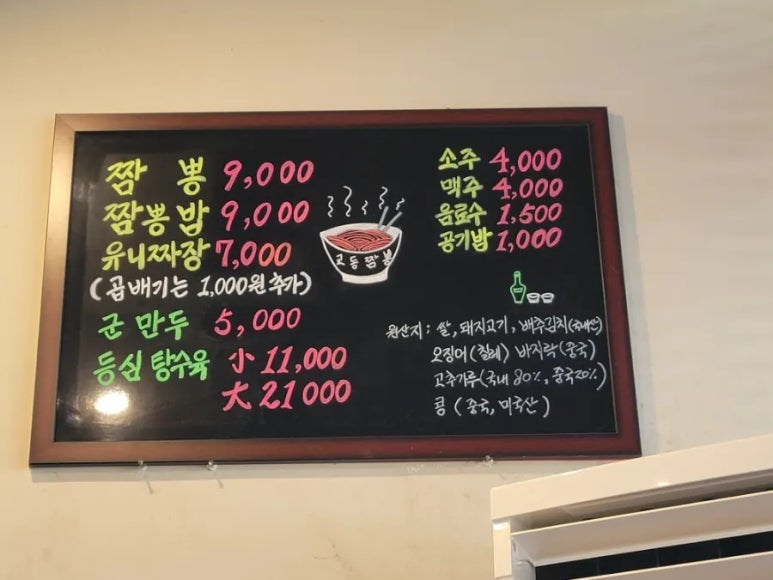 짬 뽕 9,000
짬뽕밥 9,000
유니짜장 7,000
(곱배기는 1,000원추가)
군 만두 5,000
등심 탕수육 小 11,000
大 21000
고동짬뽕
소주 4,000
맥주 4,000
음료수 1,500
공기밥 1,000
원산지 : 쌀, 돼지고기, 배추김치(국내산)
오징어 (칠레) 바지락 (중국)
고추가루 (국내 80%, 중국20%)
콩 (중국, 미국산)